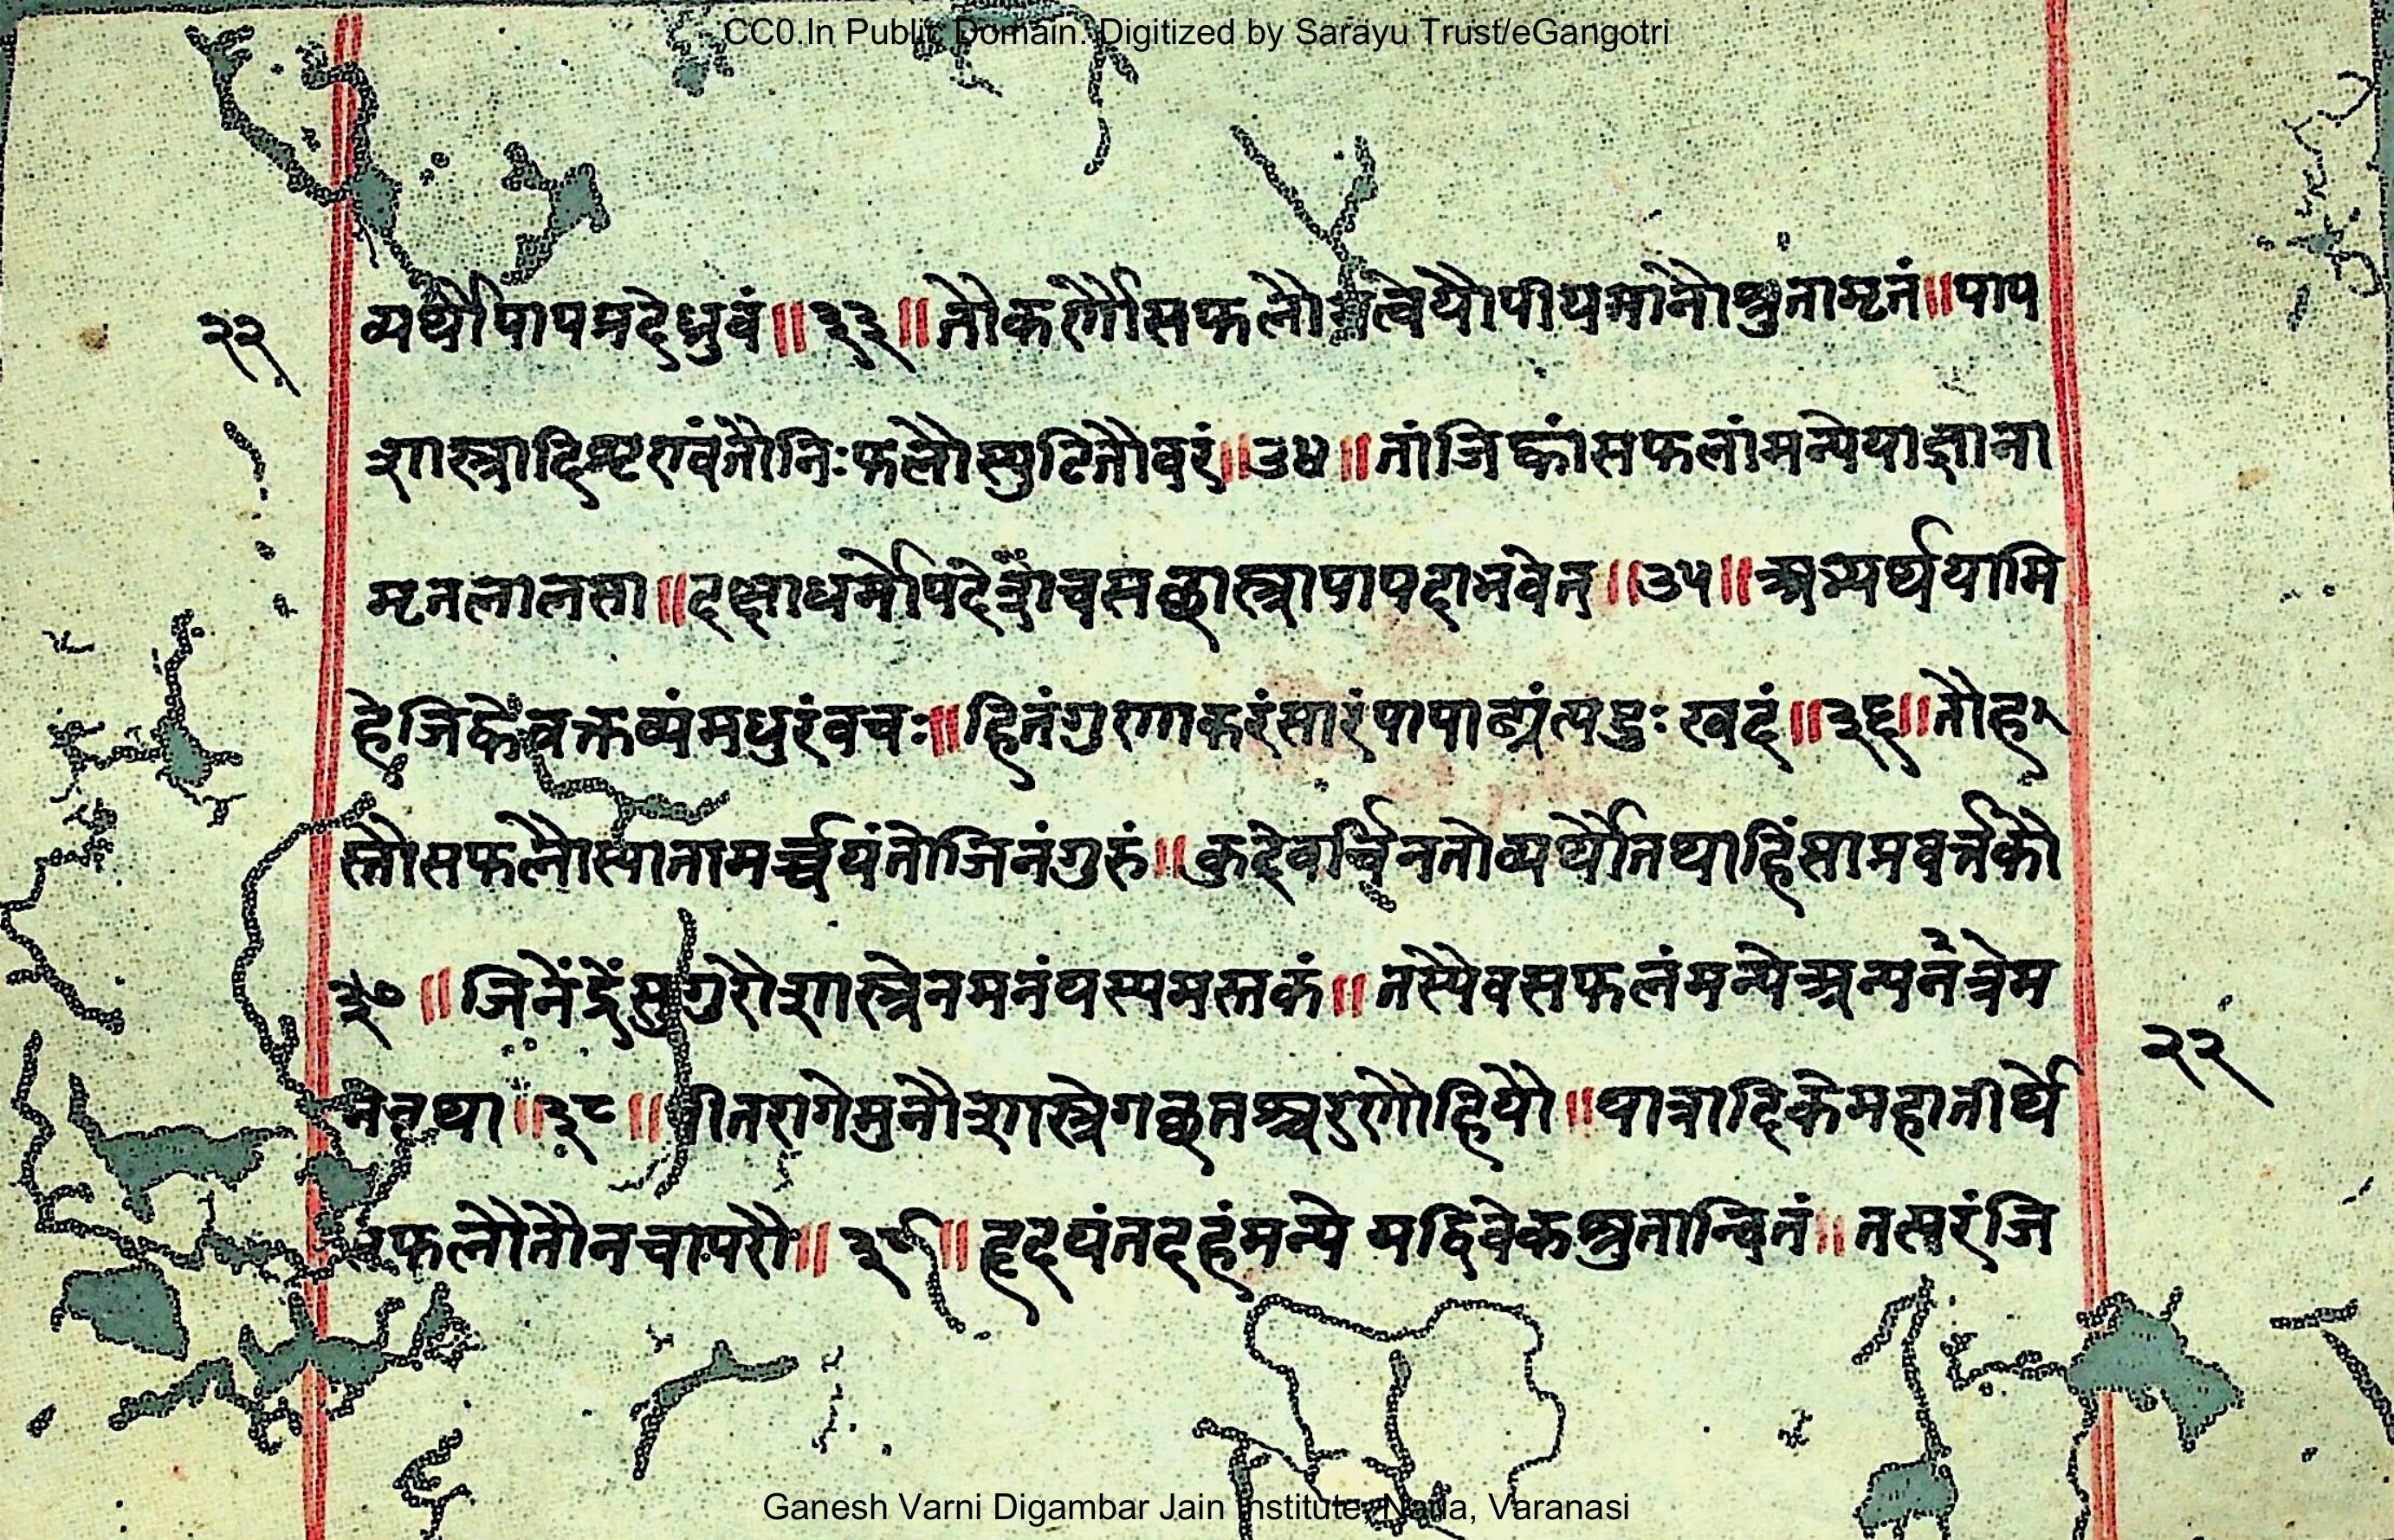 CC0.In Public Domain. Digitized by Sarayu Trust/eGangotri
२२
व्यर्थौपापमदेध्रुवं॥३३॥तौकर्णौसफलौमत्वेयौपीयमानौश्रुतामृतं॥पाप
शास्त्रादिशृण्वंतौनिःफलौस्फुटितौवरं॥३४॥तांजिह्वांसफलांमन्येयाज्ञाना
मृतलालसा॥दक्षाधर्मोपदेशैचसछास्त्रापापदाभवेत्॥३५॥अभ्यर्थयामि
हेजिह्वेवक्तव्यंमधुरंवचः॥हितंगुणाकरंसारंपापाढ्यंत्यदुःखदं॥३६॥तौह
स्तौसफलौस्यातामर्च्चयंतौजिनंगुरुं॥कुदेवार्चिनतोव्यर्थौतथाहिंसाप्रवर्त्तकौ
३७॥जिनेंद्रेंसुगुरौशास्त्रेनमनंयस्यमस्तकं॥तस्यैवसफलंमन्येअन्यनंत्रेम
नेतथा॥३८॥वीतरागेमुनौशास्त्रेगछतश्चरणौहियौ॥यात्रादिकेमहातीर्थे
सफलौतौनचापरौ॥३९॥हृदयंतदहंमन्येयद्विवेकश्रुतान्वितं॥तत्परंजि
२२
Ganesh Varni Digambar Jain Institute, Naria, Varanasi